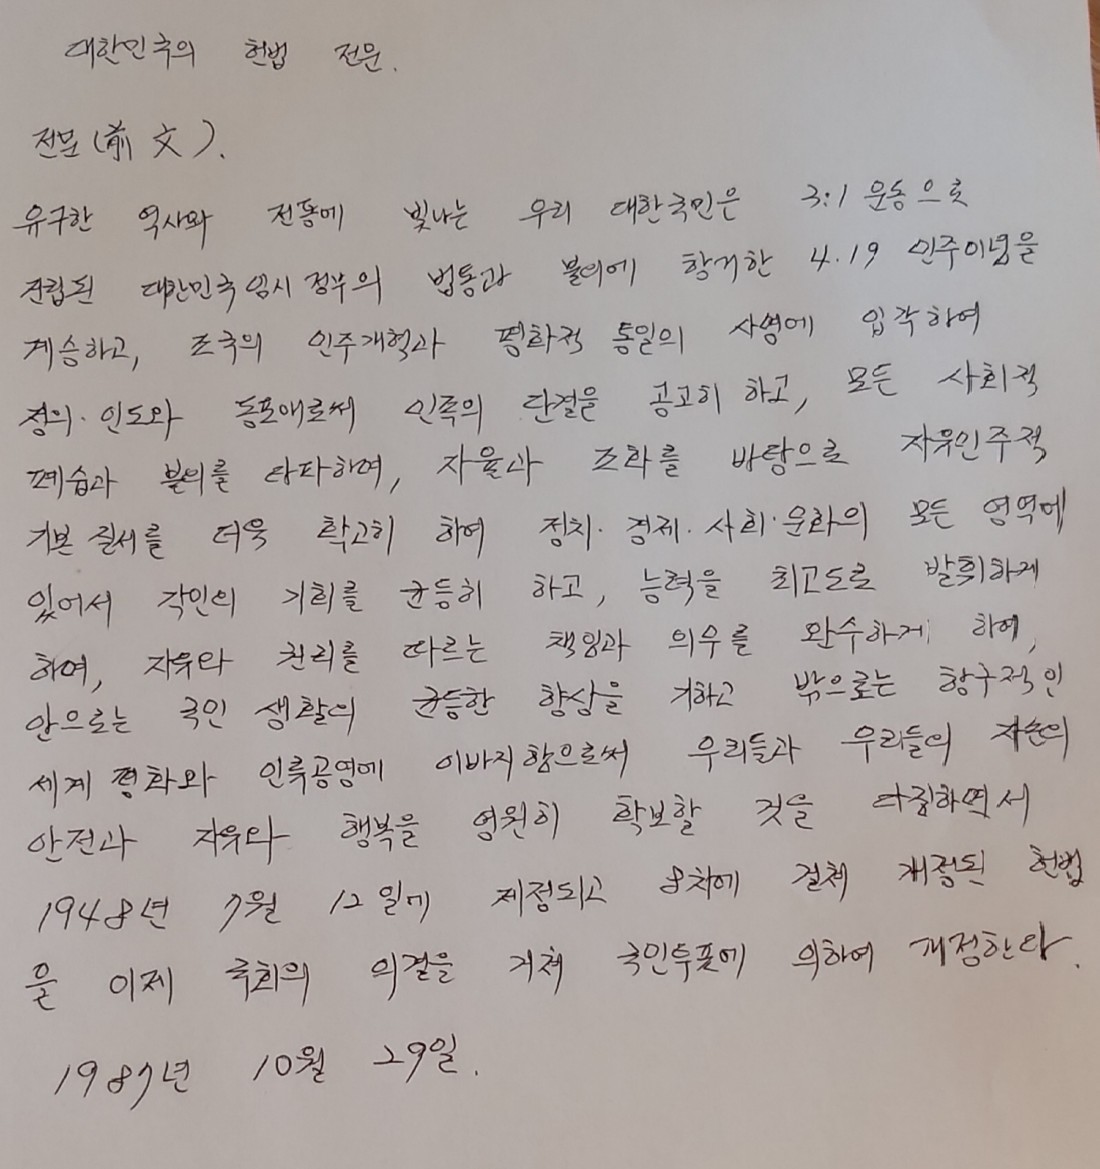 대한민국의 헌법 전문.
전문(前文).
유구한 역사와 전통에 빛나는 우리 대한국민은 3:1 운동으로
건립된 대한민국임시정부의 법통과 불의에 항거한 4.19 민주이념을
계승하고, 조국의 민주개혁과 평화적 통일의 사명에 입각하여
정의·인도와 동포애로써 민족의 단결을 공고히 하고, 모든 사회적
폐습과 불의를 타파하며, 자율과 조화를 바탕으로 자유민주적
기본질서를 더욱 확고히 하여 정치·경제·사회·문화의 모든 영역에
있어서 각인의 기회를 균등히 하고, 능력을 최고도로 발휘하게
하며, 자유와 권리를 따르는 책임과 의무를 완수하게 하여,
안으로는 국민생활의 균등한 향상을 기하고 밖으로는 항구적인
세계평화와 인류공영에 이바지함으로써 우리들과 우리들의 자손의
안전과 자유와 행복을 영원히 확보할 것을 다짐하면서
1948년 7월 12일에 제정되고 8차에 걸쳐 개정된 헌법
을 이제 국회의 의결을 거쳐 국민투표에 의하여 개정한다.
1987년 10월 29일.